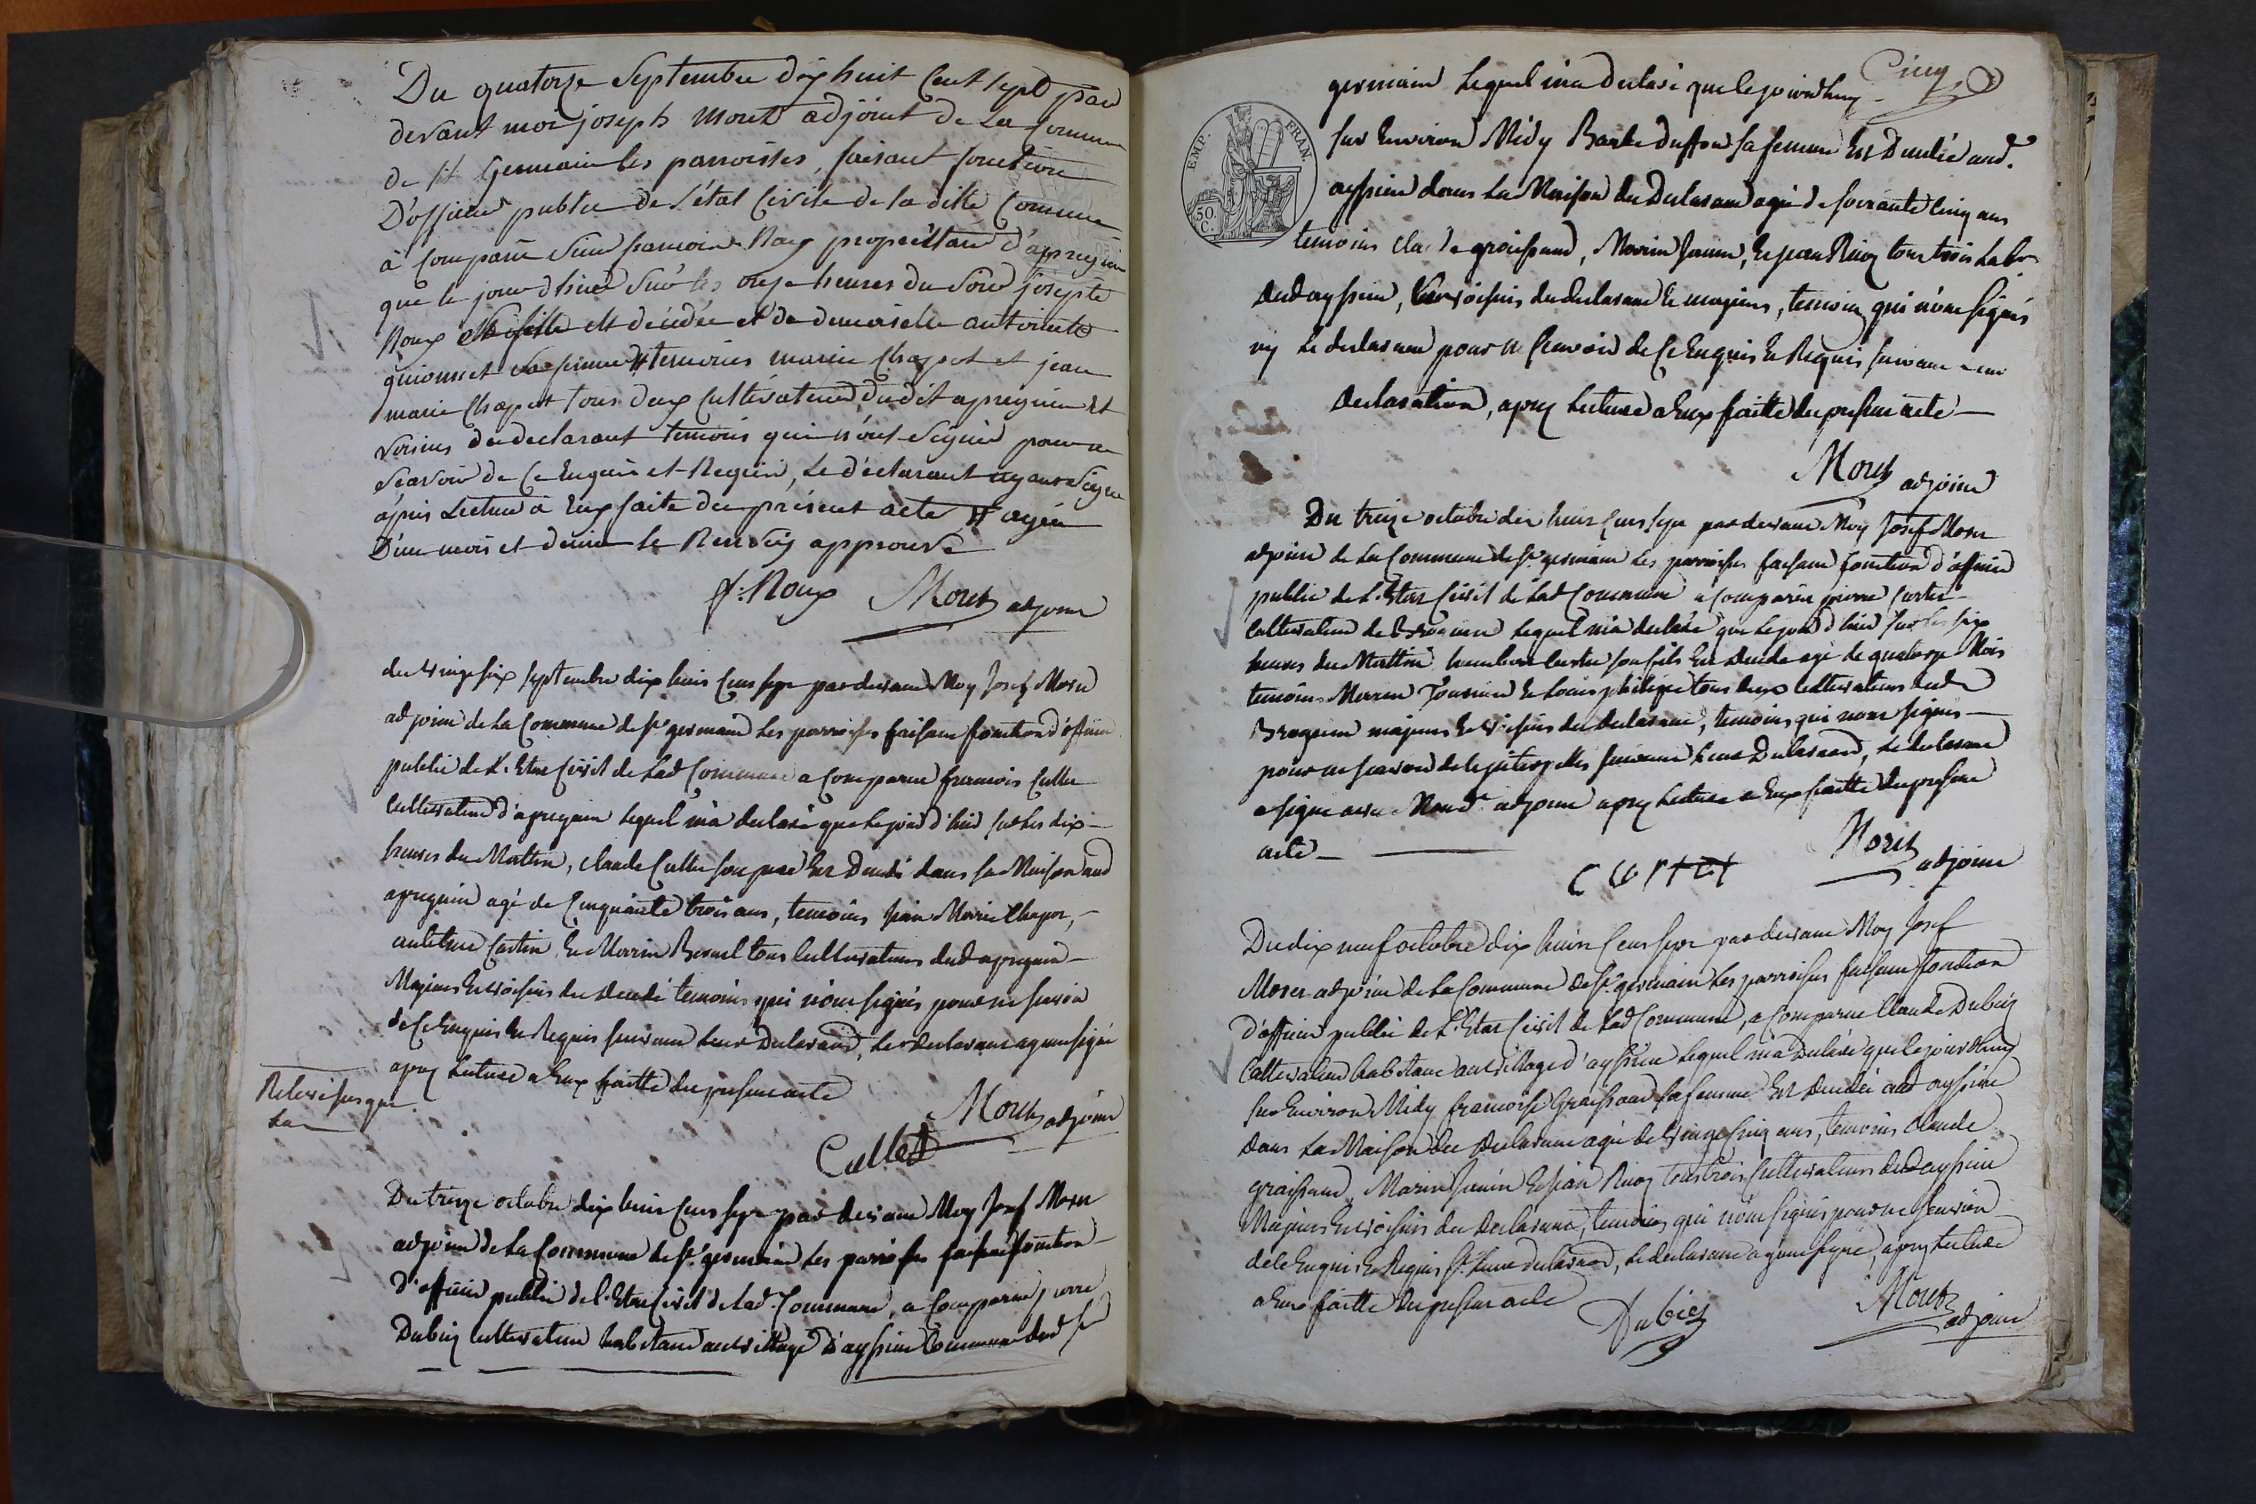 Du quatorze Septembre dix huit Cent sept par
devant moi joseph Moret adjoint de La Commune
de St Germain les parroisses, faisant fonction
D'officier public de L'état Civile de la ditte Commune
à Comparu Sieur francois Roux propriettaire d'apregnin
que le jour d'hier Sur les onze heures du Soir josepte
Roux sa fille est décédée et de demoiselle antoinette
guionnet sa femme # temoins marie Chapot et jean
marie Chapot tous deux Cultivateurs dudit apregnin et
voisins du declarant temoins qui n'ont Signé pour ne
Scavoir de Ce Enquis et Requis, Le déclarant ayant Signé
après Lecture à Eux faite du présent acte # agée
D'un mois et demi Le Renvoy approuvé
f. Roux Moret adjoint
du vingt six septembre dix huit Cent sept par devant Moy Josef Moret
adjoint de La Commune de St germain Les parroisses faisant fonction d'officier
public de L'Etat Civil de Lad Commune a Comparu francois Cullet
Cultivateur d'apregnin Lequel m'a declaré que Le jour d'hui sur Les dix
heures du Mattin, claude Cullet son pere Est Decedé dans sa Maison aud
apregnin agé de Cinquante trois ans, temoins jean Marie Chapot,
antelme Cartin Et Marin Beruel tous Cultivateurs dud apregnin
Majeurs Et voisins du decedé temoins qui n'ont signés pour ne scavoir
de Ce Enquis Et Requis suivant Leur Declaration, Le declarant ayant signé
apres Lecture a Eux faitte du present acte
Relevé jusque
La
Moret adjoint
Cullet
Du treize octobre dix huit Cent sept par devant Moy Josef Moret
adjoint de La Commune de St germain Les parroisses faisant fonction
D'officier public de l'Etat Civil de Lad Commune, a Comparu pierre
Dubiez Cultivateur habitant au village D'ayssieu Commune dud St
Cinq
germain Lequel m'a declaré que le jourdhuy
sur Environ Midy Barbe Duffour sa femme Est Decedée aud.
ayssieu dans La Maison du Declarant agée de soixante Cinq ans
temoins claude graissard, Marin Janin, Et jean Ruoz tous trois Labr
dud ayssieu, voisins du declarant Et majeurs, temoins qui n'ont signés
ny Le declarant pour ne scavoir de Ce Enquis Et Requis suivant Leur
Declaration, apres Lecture a Eux faitte du present acte
Moret adjoint
Du treize octobre dix huit Cent sept par devant Moy Josef Moret
adjoint de La Commune de St germain Les parroisses faisant fonction d'officier
public de L'Etat Civil de Lad Commune a Comparu pierre Curtet
Cultivateur de Brognin Lequel m'a declaré que Le jour d'hui sur Les six
heures du Mattin humbert Curtet son fils Est Decedé agé de quatorze Mois
temoins Marin Tournier Et Louis philipe tous deux Cultivateurs dud
Brognin majeurs Et voisins du declarant, temoins qui n'ont signés
pour ne scavoir de Ce interpellés suivant Leur Declaration, Le declarant
a signé avec Nous adjoint apres Lecture a Eux faitte du present
acte
Curtet
Moret
adjoint
Du dix neuf octobre dix huit Cent sept par devant Moy Josef
Moret adjoint de La Commune de St germain Les parroisses faisant fonction
d'officier public de L'Etat Civil de Lad Commune, a Comparu Claude Dubiez
Cultivateur habitant au village d'ayssieu Lequel m'a declaré que le jourdhuy
sur Environ Midy francoise Graissard sa femme Est decedée aud ayssieu
dans La Maison du Declarant agée de vingt Cinq ans, temoins Claude
graissard, Marin Janin Et jean Ruoz tous trois Cultivateurs dud ayssieu
Majeurs Et voisins du declarant, temoins qui n'ont signés pour ne scavoir
de Ce Enquis Et Requis st Leur declaration, Le declarant ayant signé, apres Lecture
a Eux faitte du present acte
Dubiez
Moret
adjoint
EMP. FRAN.
50
C.